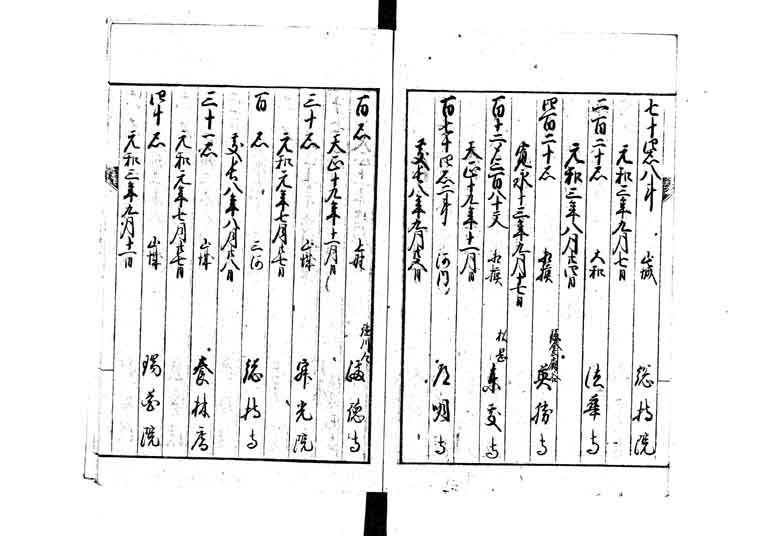 七十四石八斗 山城 総持院
元和三年九月七日
二百二十石 大和 法華寺
元和三年八月廿四日
四百二十石 相模 英勝寺
寛永十三年九月十七日
百十二〆三百八十文 相模 東慶寺
天正十九年十一月日
百七十四石二斗 河内 道明寺
慶長八年九月廿五日
百石 上野 徳川 満徳寺
天正十九年十一月日
三十石 山城 寂光院
元和元年七月廿七日
百石 三河 総持寺
慶長八年八月廿八日
三十一石 山城 養林庵
元和元年七月廿七日
四十石 山城 瑞花院
元和三年九月十一日